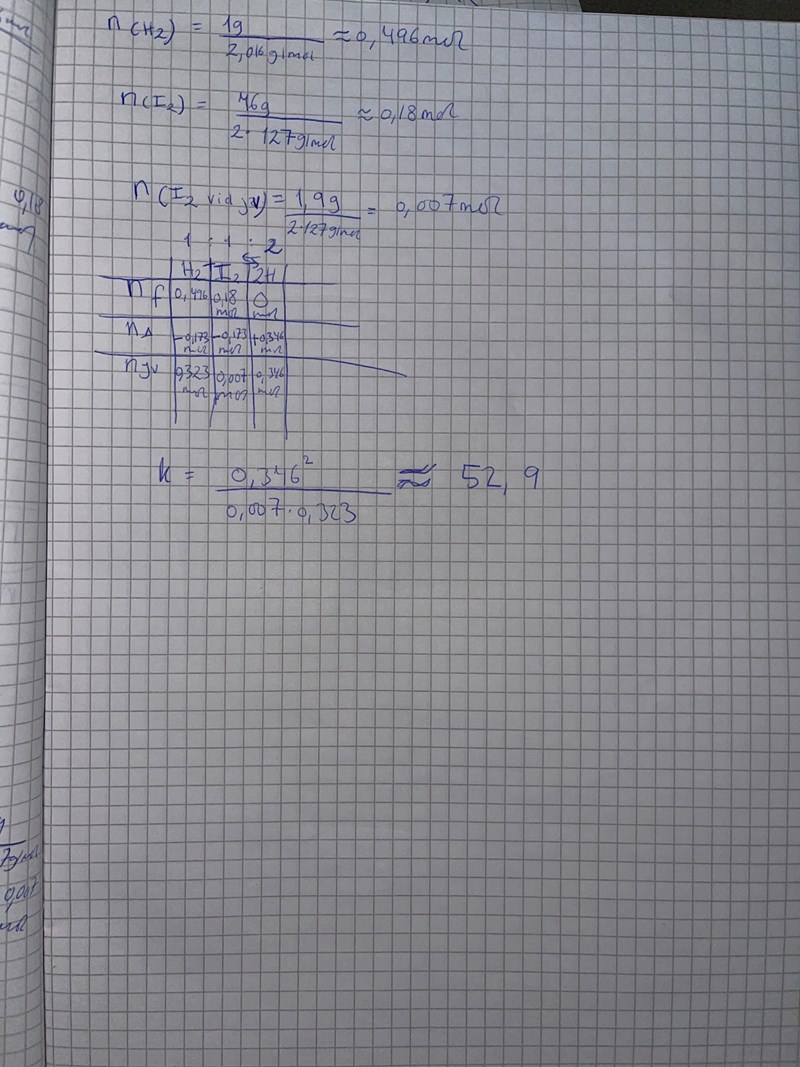 n(H2) = 1g / 2,016g/mol ≈ 0,496mol
n(I2) = 46g / 2·127g/mol ≈ 0,18mol
n(I2 vid jv) = 1,9g / 2·127g/mol = 0,007mol
1 : 1 : 2
H2 + I2 ⇆ 2H
nf 0,496 0,18 mol 0 mol
nΔ -0,173 mol -0,173 mol +0,346 mol
njv 0,323 mol 0,007 mol 0,346 mol
k = 0,346² / 0,007·0,323 ≈ 52,9
0,18
mol
7g/mol
0,007
mol